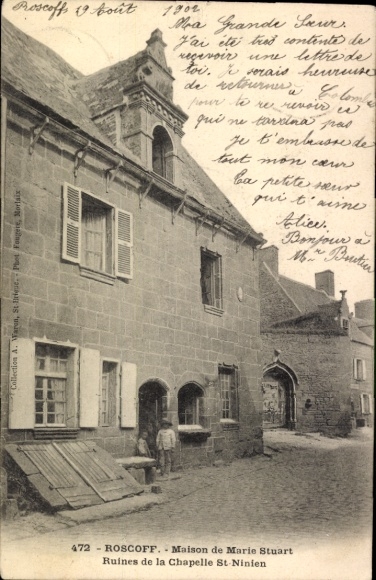 Roscoff 29 Août 1902
Ma Grande Sœur.
J'ai été très contente de
recevoir une lettre de
toi. Je serais heureuse
de retourner à Colombe
pour te revoir ce
qui ne tardera pas
Je t'embrasse de
tout mon cœur
Ta petite sœur
qui t'aime
Alice.
Bonjour à
Mr
Collection A. Waron, St-Brieuc. - Phot. Fougère, Morlaix
472 - ROSCOFF. - Maison de Marie Stuart
Ruines de la Chapelle St-Ninien